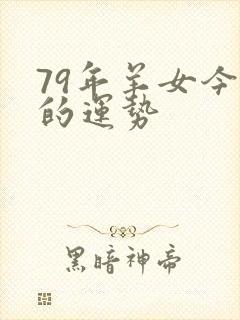 79年羊女今
的運势
黑暗神帝